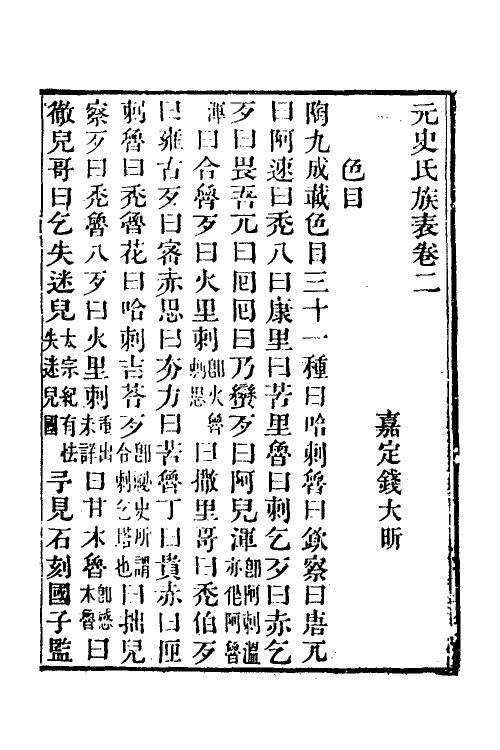 元史氏族表卷二
嘉定錢大昕
色目
陶九成載色目三十一種曰哈剌魯曰欽察曰唐兀
曰阿速曰禿八曰康里曰苦里魯曰剌乞歹曰赤乞
歹曰畏吾兀曰回回曰乃蠻歹曰阿兒渾卽阿剌溫亦作阿魯
渾曰合魯歹曰火里剌卽火魯剌思曰撒里哥曰禿伯歹
曰雍古歹曰密赤思曰夯力曰苦魯丁曰貴赤曰匣
剌魯曰禿魯花曰哈剌吉荅歹卽遼史所謂合剌乞塔也曰拙兒
察歹曰禿魯八歹曰火里剌重出未詳曰甘木魯卽憨木魯曰
徹兒哥曰乞失迷兒太宗紀有怯失迷兒國予見石刻國子監